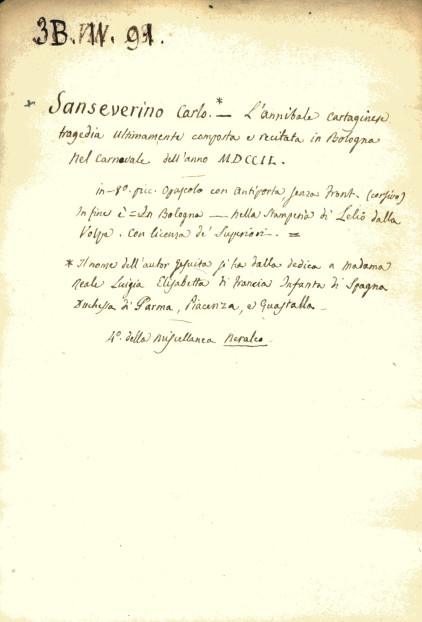 3B. IV. 91.
Sanseverino Carlo.* — L'annibale cartaginese
tragedia ultimamente composta e recitata in Bologna
nel Carnevale dell'anno MDCCIL.
in-8º. pic. Opuscolo con antiporta senza front. (corsivo)
In fine è = In Bologna — nella stamperia di Lelio dalla
Volpe. Con licenza de' Superiori. =
* Il nome dell'autor Gesuita si ha dalla dedica a Madama
Reale Luigia Elisabetta di Francia Infanta di Spagna
Duchessa di Parma, Piacenza, e Guastalla —
4º. della Miscellanea